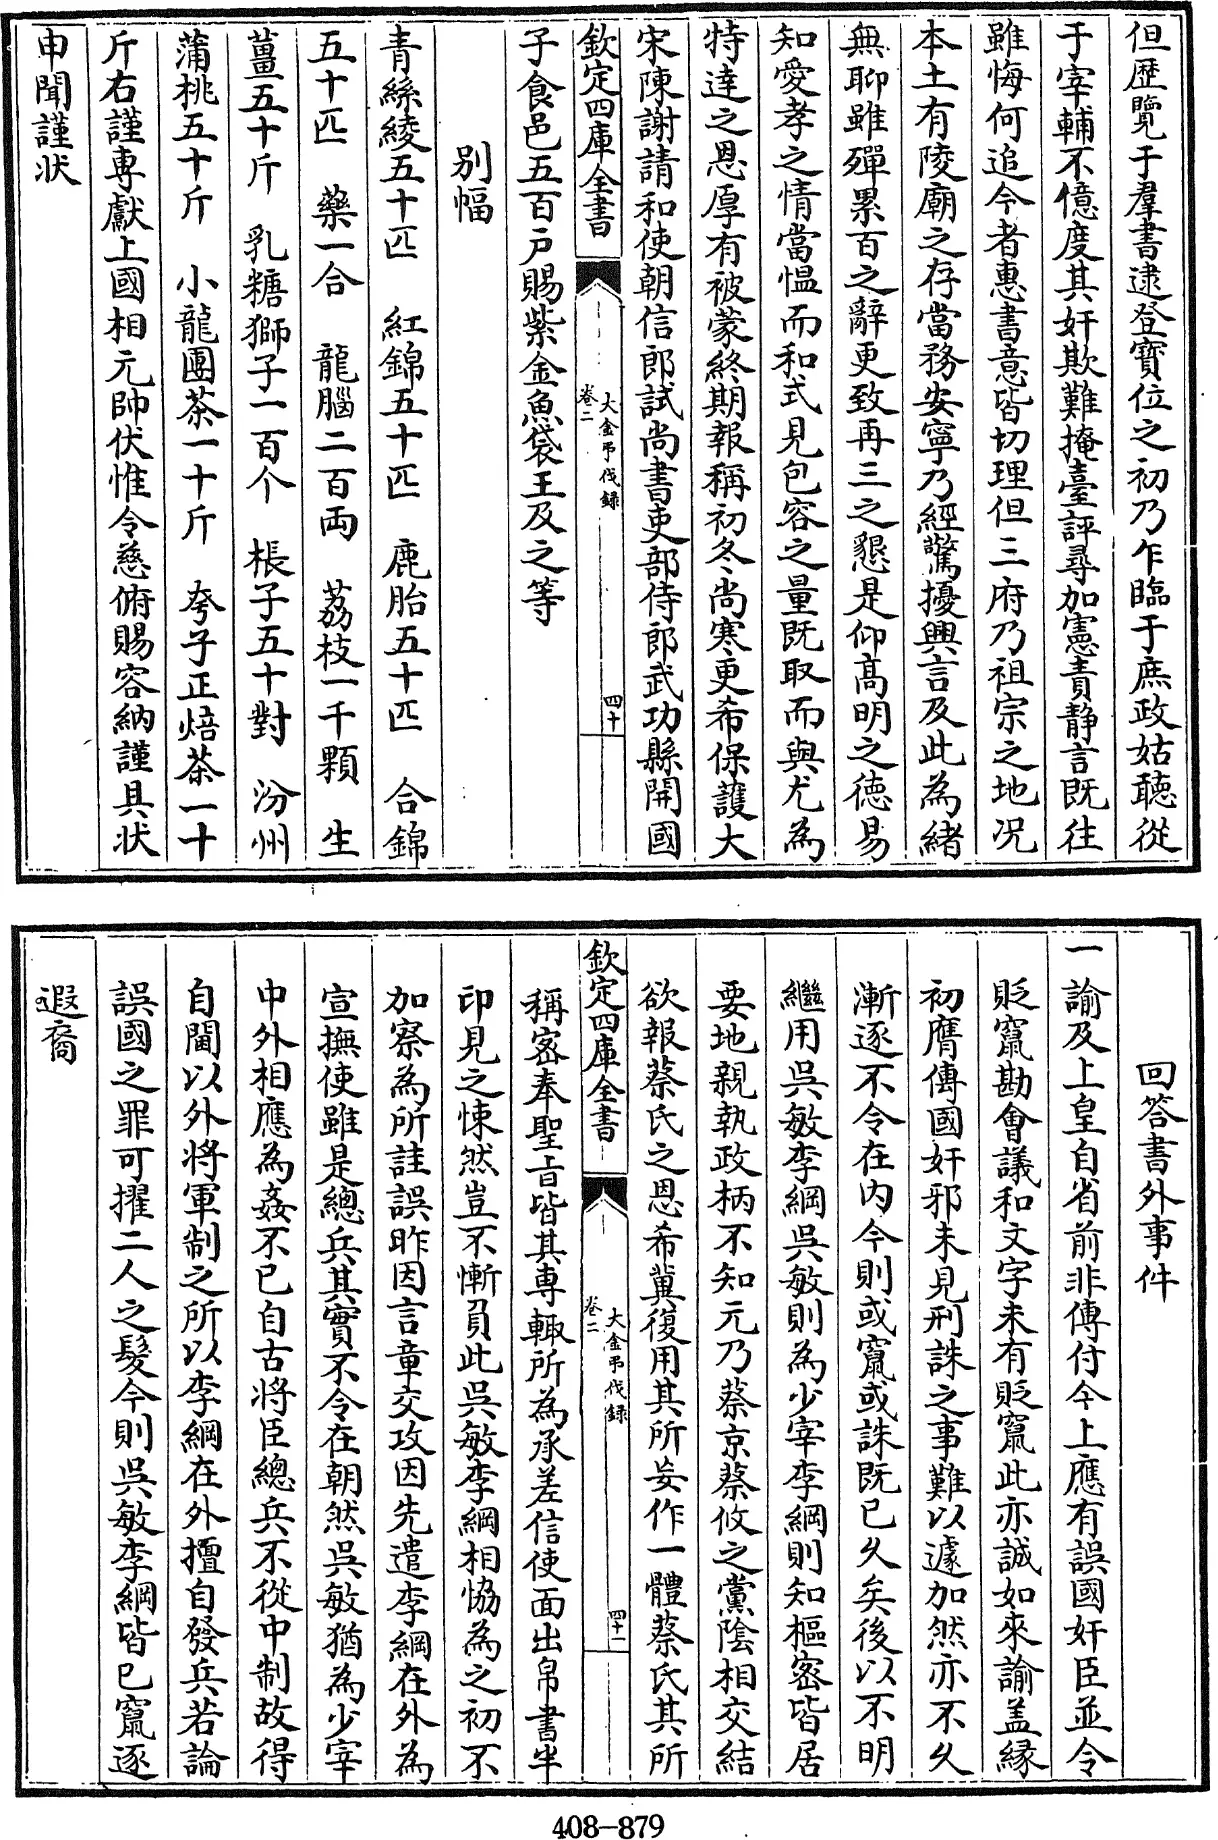 但歴覽于羣書逮登寳位之初乃乍臨于庶政姑聽從
于宰輔不億度其奸欺難掩臺評尋加憲責静言既往
雖悔何追今者惠書意皆切理但三府乃祖宗之地况
本土有陵廟之存當務安寧乃經驚擾興言及此為緒
無聊雖殫累百之辭更致再三之懇是仰髙明之徳易
知愛孝之情當愠而和式見包容之量既取而與尤為
特達之恩厚有被蒙終期報稱初冬尚寒更希保護大
宋陳謝請和使朝信郎試尚書吏部侍郎武功縣開國
欽定四庫全書
大金弔伐録
卷二
四十
子食邑五百户賜紫金魚袋王及之等
别幅
青絲綾五十匹 紅錦五十匹 鹿胎五十匹 合錦
五十匹 藥一合 龍腦二百両 荔枝一千顆 生
薑五十斤 乳糖獅子一百个 棖子五十對 汾州
蒲桃五十斤 小龍團茶一十斤 夸子正焙茶一十
斤右謹専獻上國相元帥伏惟令慈俯賜容納謹具状
申聞謹状
回答書外事件
一諭及上皇自省前非傳付今上應有誤國奸臣並令
貶竄勘會議和文字未有貶竄此亦誠如來諭盖縁
初膺傳國奸邪未見刑誅之事難以遽加然亦不久
漸逐不令在内今則或竄或誅既已久矣後以不明
繼用吳敏李綱吳敏則為少宰李綱則知樞密皆居
要地親執政柄不知元乃蔡京蔡攸之黨陰相交結
欲報蔡氏之恩希冀復用其所妄作一體蔡氏其所
欽定四庫全書
大金弔伐録
卷二
四十一
稱密奉聖旨皆其専輙所為承差信使面出帛書半
印見之悚然豈不慚負此吳敏李綱相協為之初不
加察為所詿誤昨因言章交攻因先遣李綱在外為
宣撫使雖是總兵其實不令在朝然吳敏猶為少宰
中外相應為姦不已自古将臣總兵不從中制故得
自閫以外将軍制之所以李綱在外擅自發兵若論
誤國之罪可擢二人之髮今則吳敏李綱皆已竄逐
遐裔
408-879